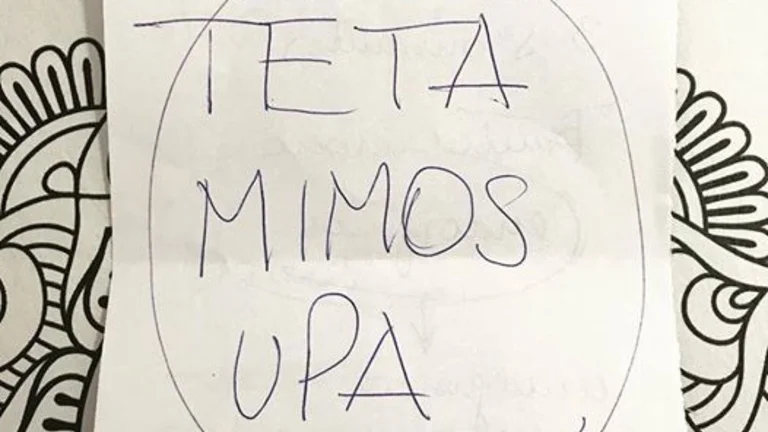 TETA
MIMOS
UPA